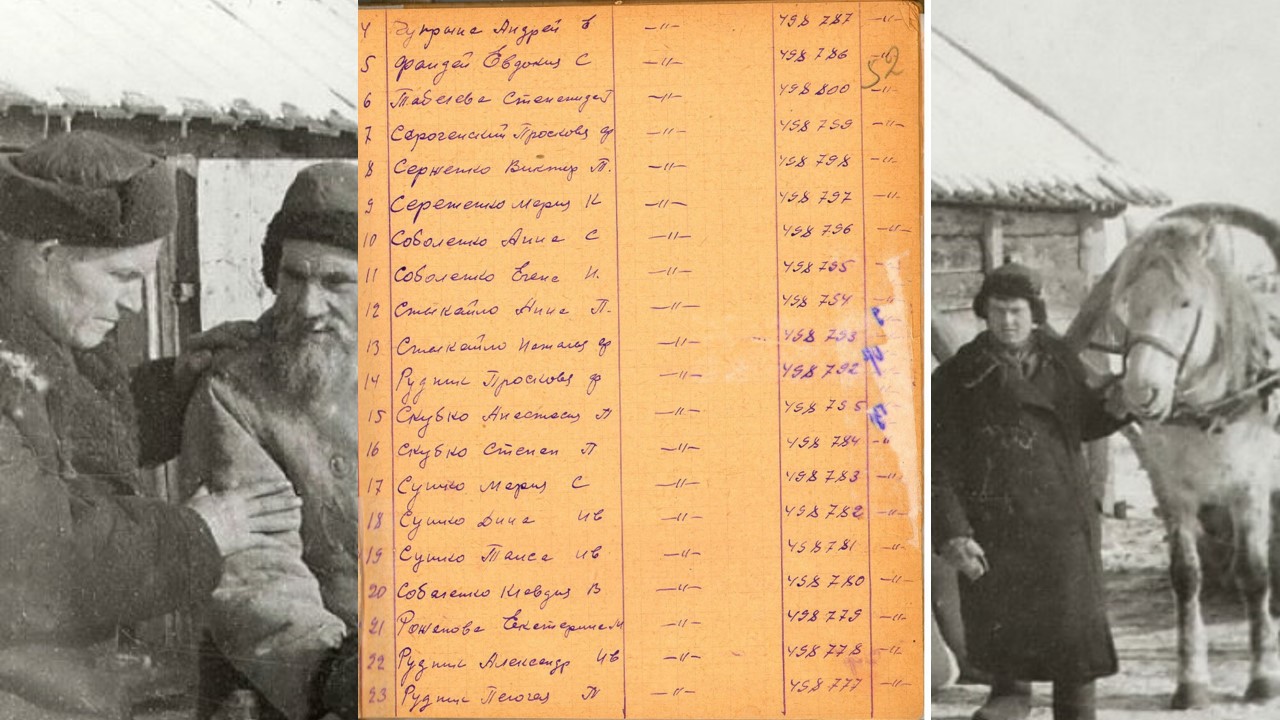 4 Андрей —"— 498 787 —"—
5 Евдокия С —"— 498 786 —"—
52
6 —"— 498 800 —"—
7 Просковя ф —"— 498 799 —"—
8 Серженко Виктор П. —"— 498 798 —"—
9 Сереженко Мария К —"— 498 797 —"—
10 Соболенко Анна С —"— 498 796 —"—
11 Соболенко Елена И. —"— 498 795
12 Стыкайло Нина П. —"— 498 794
13 Стыкайло Наталя ф —"— 498 793
14 Рудник Просковя ф —"— 498 792
15 Скубко Анастасия П —"— 498 785
16 Скубко Степан П —"— 498 784 —"
17 Сушко Мария С —"— 498 783
18 Сушко Дина Ив —"— 498 782 —"—
19 Сушко Таиса Ив —"— 498 781 —"—
20 Соболенко Клавдия В —"— 498 780 —"—
21 Роженова Екатерина М —"— 498 779 —"—
22 Рудник Александр Ив —"— 498 778 —"—
23 Рудник Пелогея П —"— 498 777 —"—